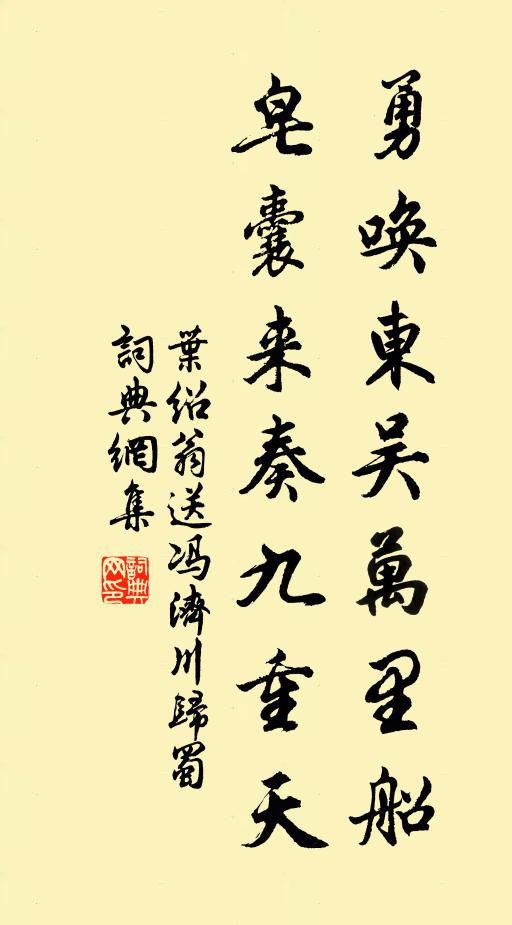 勇喚東吴萬里船
皂囊来奏九重天
葉绍翁送冯濟川歸蜀
詞典網集
詞典网印